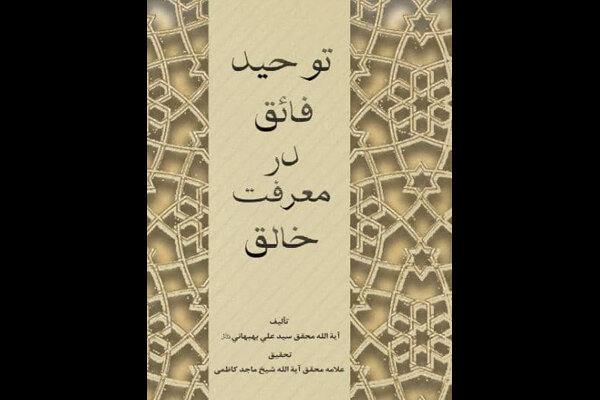 توحید
فائق
در
معرفت
خالق
تأليف
آیة الله محقق سید علي بهبهاني
تحقیق
علامه محقق آیة الله شیخ ماجد کاظمی